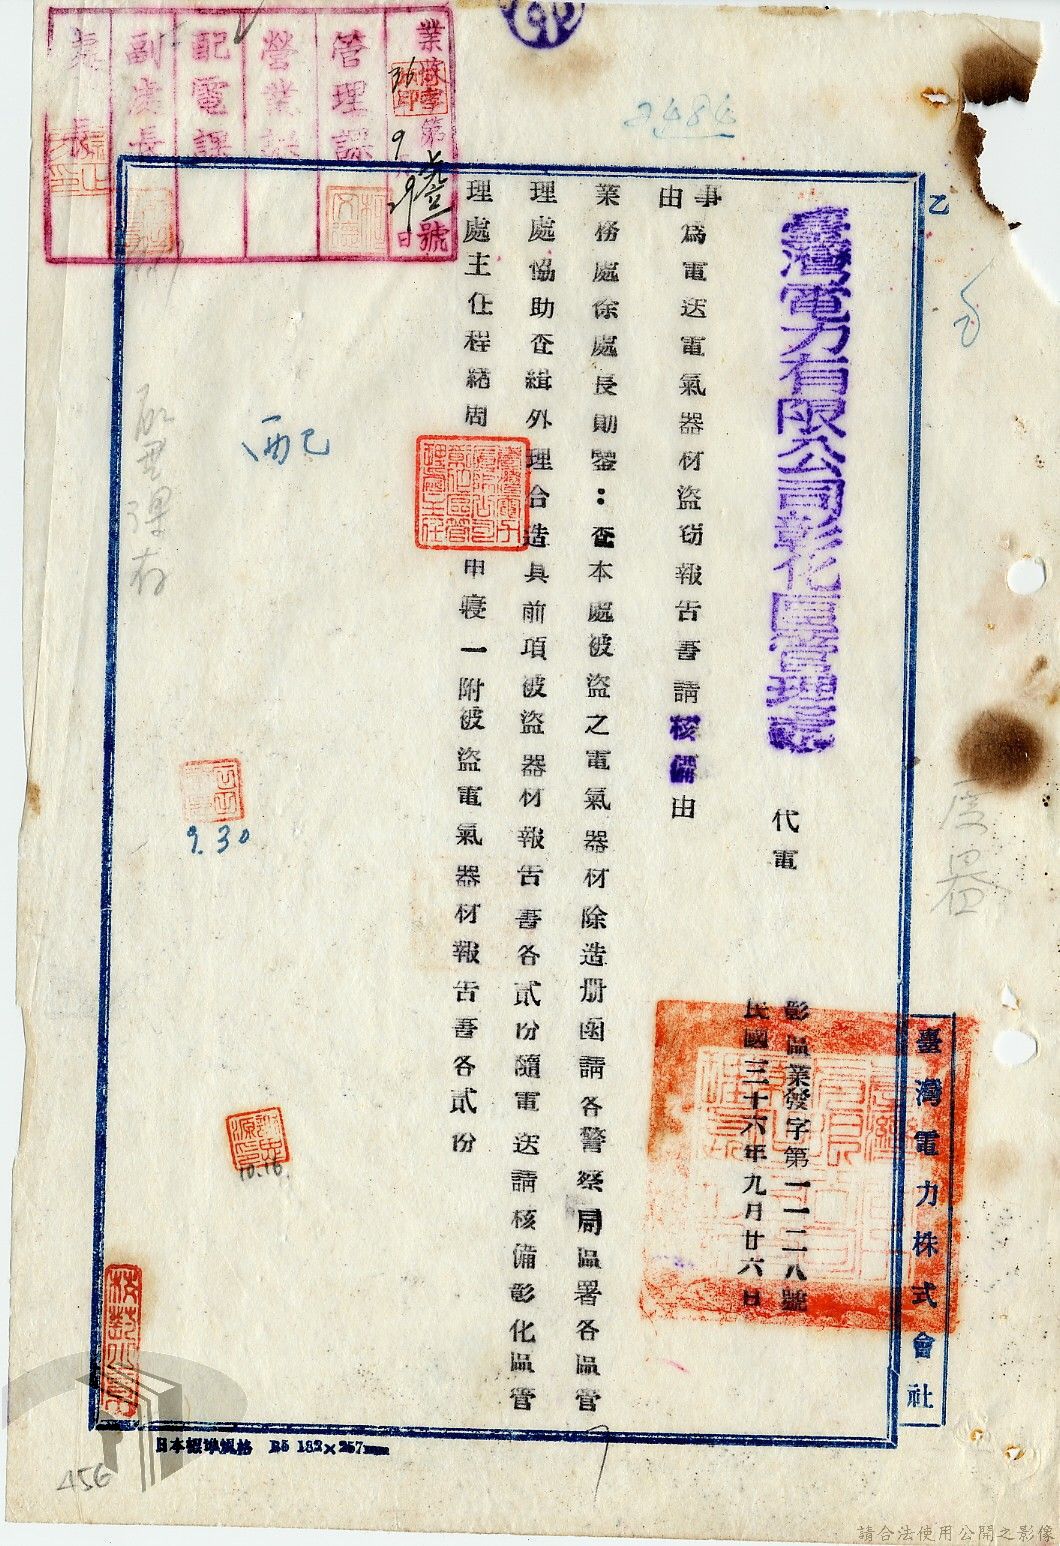 臺灣電力有限公司彰化區管理處 代電
彰區業發字第一一二八號
民國三十六年九月廿六日
事由 為電送電氣器材盜窃報告書請核備由
業務處徐處長勛鑒：查本處被盜之電氣器材除造册函請各警察局區署各區管
理處協助查緝外理合造具前項被盜器材報告書各貳份隨電送請核備彰化區管
理處主任程緒周
申寑一附被盜電氣器材報告書各貳份
管理課
營業課
配電課
副處長
處長
業
第
號
36
9
29
日
乙
配
9.30
10.16.
臺灣電力株式會社
日本標準規格 B5 182×257mm
456
請合法使用公開之影像